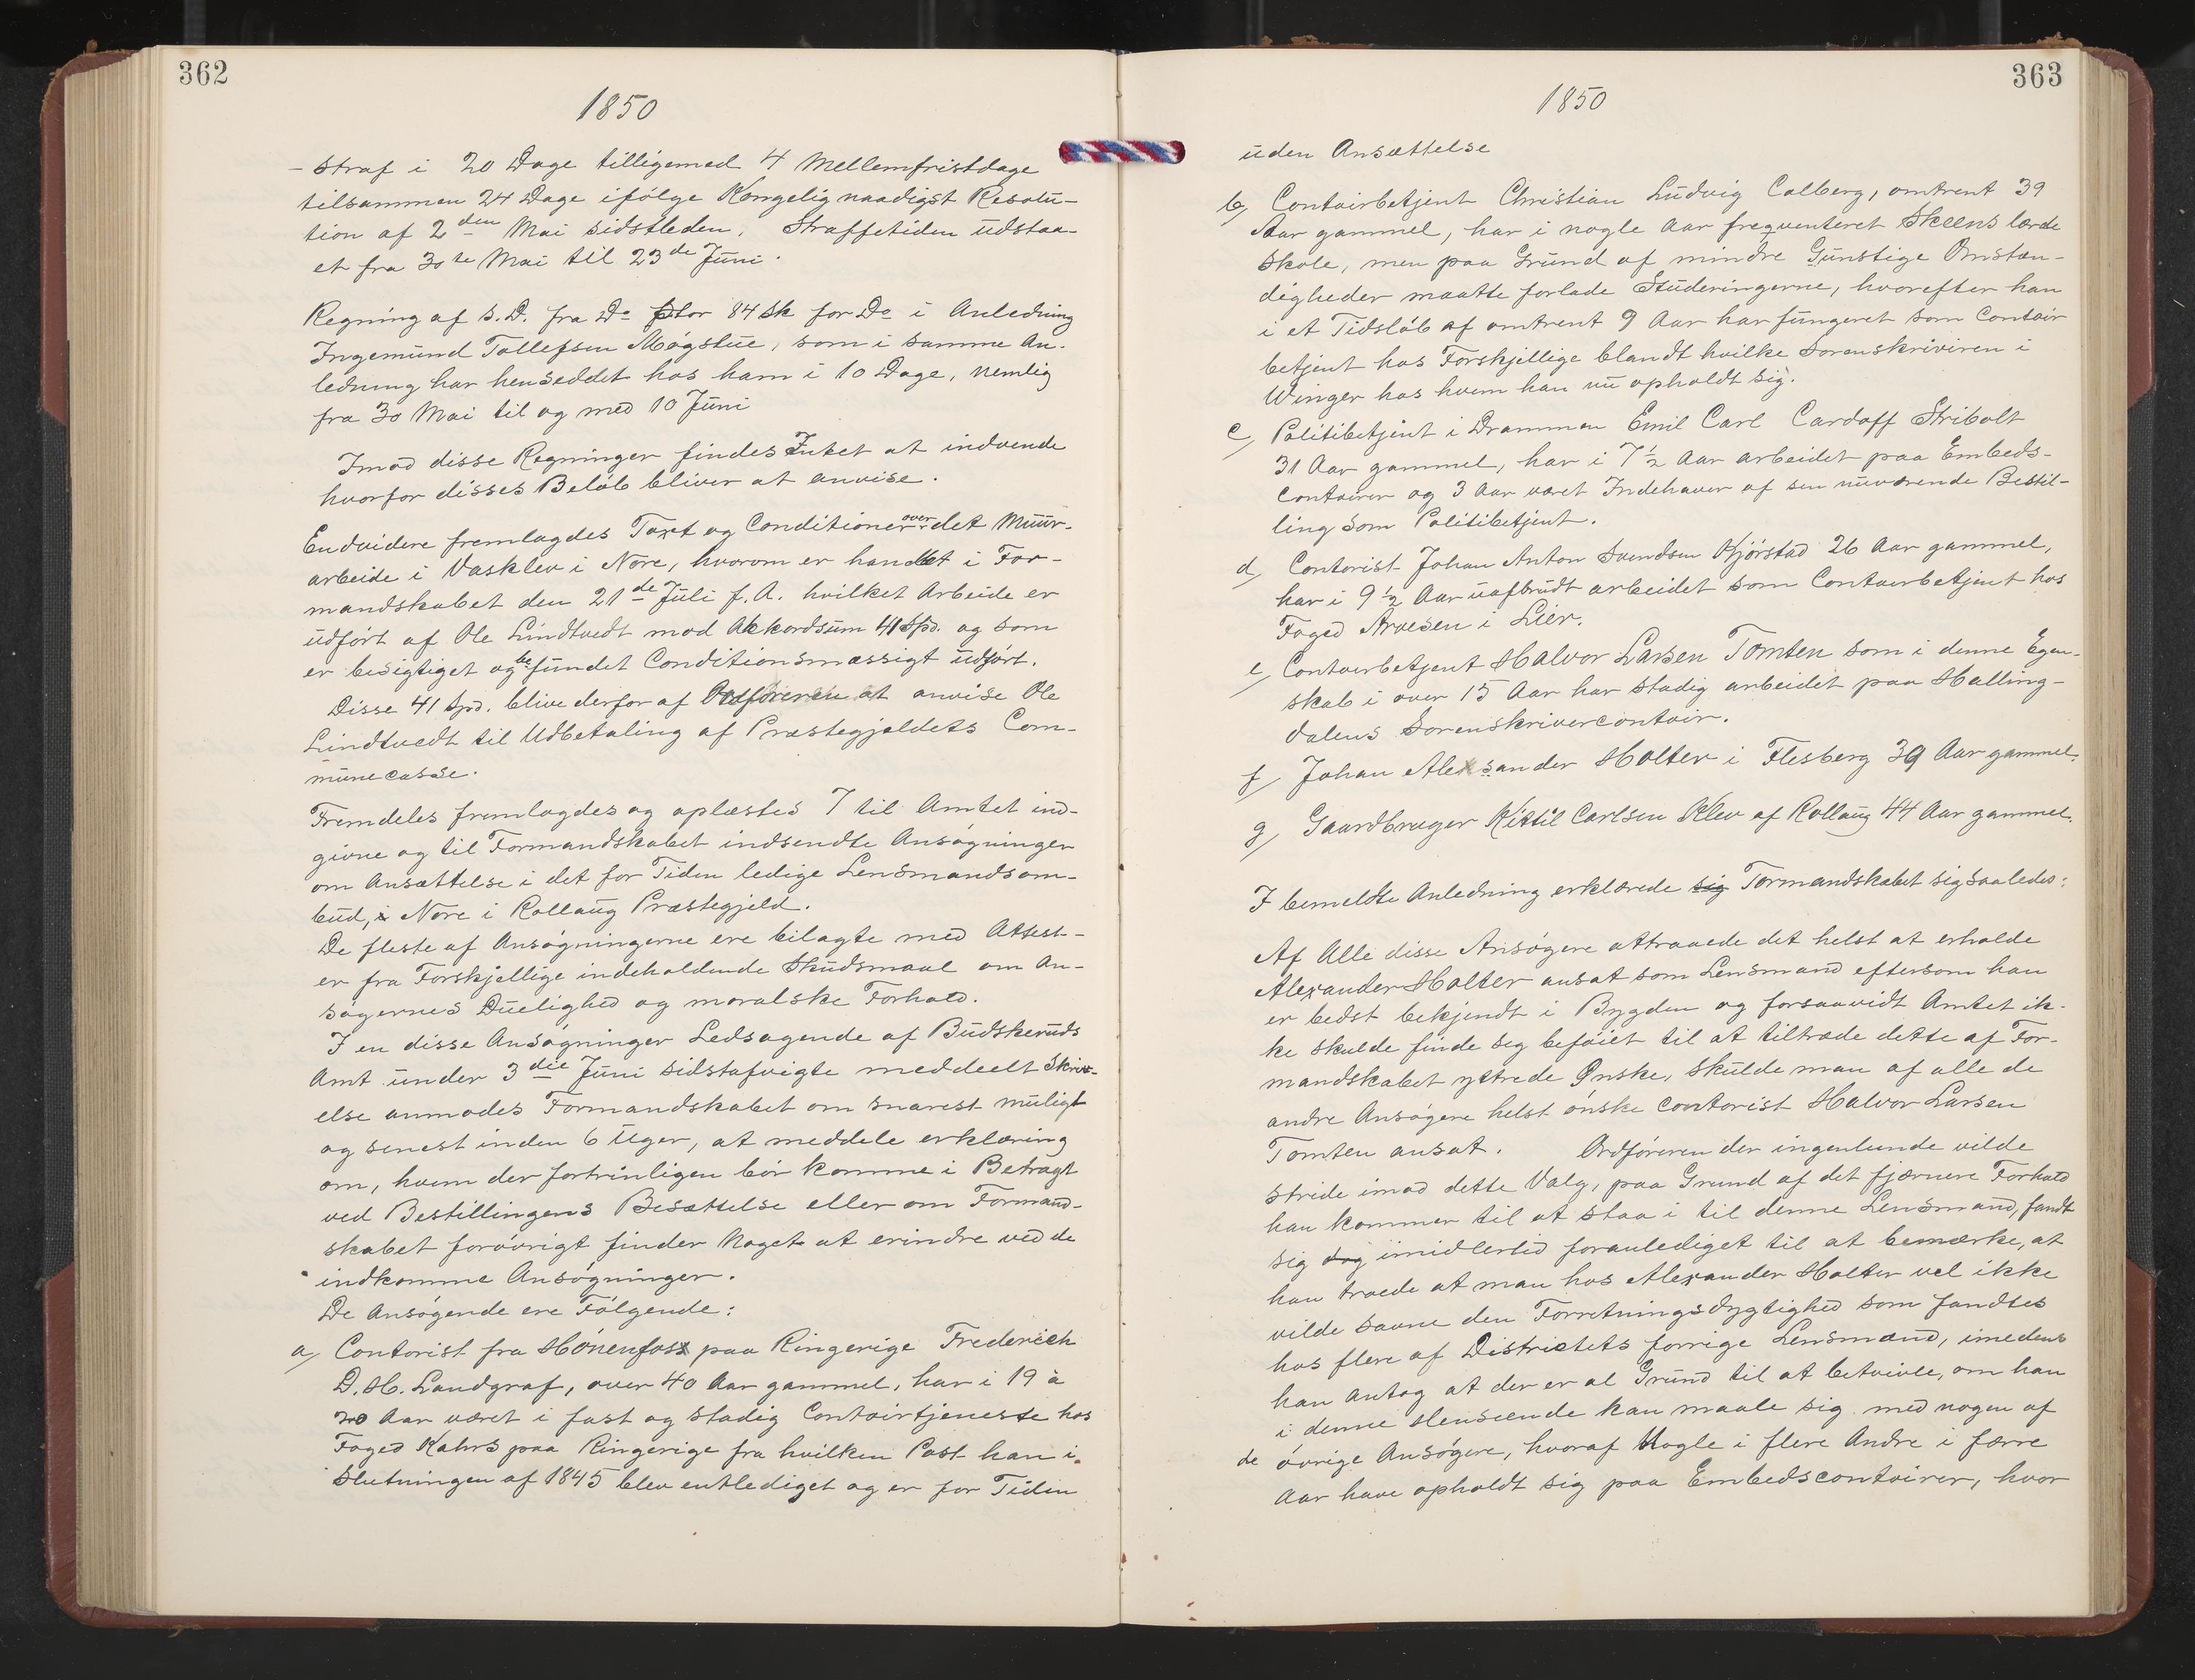 362
1850
- Straf i 20 Dage tilligemed 4 Mellemfristdage
tilsammen 24 Dage ifølge Kongelig naadigst Resolu-
tion af 2den Mai sidstleden. Straffetiden udstaa-
et fra 30te Mai til 23de Juni.
Regning af s.D. fra Do stor 84 sk for Do i Anledning
Ingemund Tollefsen Møgstue, som i samme An-
ledning har henseddet hos ham i 10 Dage, nemlig
fra 30 Mai til og med 10 Juni
Imod disse Regninger findes Intet at indvende
hvorfor disses Beløb bliver at anvise.
Endvidere fremlagdes Taxt og Conditioner over det Muur-
arbeide i Vasklev i Nore, hvorom er handlet i For-
mandskabet den 21de Juli f.A. hvilket Arbeide er
udført af Ole Lindtvedt mod Akkordsum 41 Spd. og som
er besigtiget og befundet Conditionsmæssigt udført.
Disse 41 Spd. blive derfor af Ordføreren at anvise Ole
Lindtvedt til Udbetaling af Præstegjeldets Com-
munecasse.
Fremdeles fremlagdes og oplæstes 7 til Amtet ind-
givne og til Formandskabet indsendte Ansøgninger
om Ansættelse i det for Tiden ledige Lensmandsom-
bud, i Nore i Rollaug Præstegjeld.
De fleste af Ansøgningerne ere bilagte med Attest-
er fra Forskjellige indeholdende Skudsmaal om An-
søgernes Duelighed og moralske Forhold.
I en disse Ansøgninger Ledsagende af Budskeruds
Amt under 3die Juni sidstafvigte meddeelt Skriv-
else anmodes Formandskabet om snarest muligt
og senest inden 6 Uger, at meddele erklæring
om, hvem der fortrinligen bør komme i Betragt
ved Bestillingens Besættelse eller om Formand-
skabet forøvrigt finder Noget at erindre ved de
indkomne Ansøgninger.
De Ansøgende ere Følgende:
a/ Contorist fra Hønenfoss paa Ringerige Frederich
D. H. Landgraf, over 40 Aar gammel, har i 19 à
20 Aar været i fast og stadig Contoirtjeneste hos
Foged Kahrs paa Ringerige fra hvilken Post han i
Slutningen af 1845 blev entlediget og er for Tiden
363
1850
uden Ansættelse
b/ Contoirbetjent Christian Ludvig Calberg, omtrent 39
Aar gammel, har i nogle Aar freqventeret Skeens lærde
Skole, men paa Grund af mindre Gunstige Omstæn-
digheder maatte forlade Studeringerne, hvorefter han
i et Tidsløb af omtrent 9 Aar har fungeret som Contoir
betjent hos Forskjellige blandt hvilke Sorenskriviren i
Winger hos hvem han nu opholdt sig.
c/ Politibetjent i Drammen Emil Carl Cardoff Stribolt
31 Aar gammel, har i 7½ Aar arbeidet paa Embeds-
contoirer og 3 Aar været Indehaver af sen nuværende Bestil-
ling som Politibetjent.
d/ Contorist Johan Anton Svendsen Kjørstad 26 Aar gammel,
har i 9½ Aar uafbrudt arbeidet som Contoirbetjent hos
Foged Arvesen i Lier.
e/ Contoirbetjent Halvor Larsen Tomten som i denne Egen-
skab i over 15 Aar har stadig arbeidet paa Halling-
dalens Sorenskrivercontoir.
f/ Johan Alexsander Holter i Flesberg 39 Aar gammel.
g/ Gaardbruger Kittil Carlsen Klev af Rollaug 44 Aar gammel.
I bemeldte Anledning erklærede sig Formandskabet sig saaledes:
Af Alle disse Ansøgere attraaede det helst at erholde
Alexander Holter ansat som Lensmand eftersom han
er bedst bekjendt i Bygden og forsaavidt Amtet ik-
ke skulde finde sig beføiet til at tiltræde dette af For-
mandskabet yttrede Ønske, skulde man af alle de
andre Ansøgere helst ønske Contorist Halvor Larsen
Tomten ansat. Ordføreren der ingenlunde vilde
stride imod dette Valg, paa Grund af det fjærnere Forhold
han kommer til at staa i til denne Lensmand, fandt
sig dog imidlertid foranlediget til at bemærke, at
han troede at man hos Alexander Holter vel ikke
vilde savne den Forretningsdygtighed som fandtes
hos flere af Districtets forrige Lensmænd, imedens
han Antog at der er al Grund til at betvivle, om han
i denne Henseende kan maale sig med nogen af
de øvrige Ansøgere, hvoraf Nogle i flere Andre i færre
Aar have opholdt sig paa Embedscontoirer, hvor